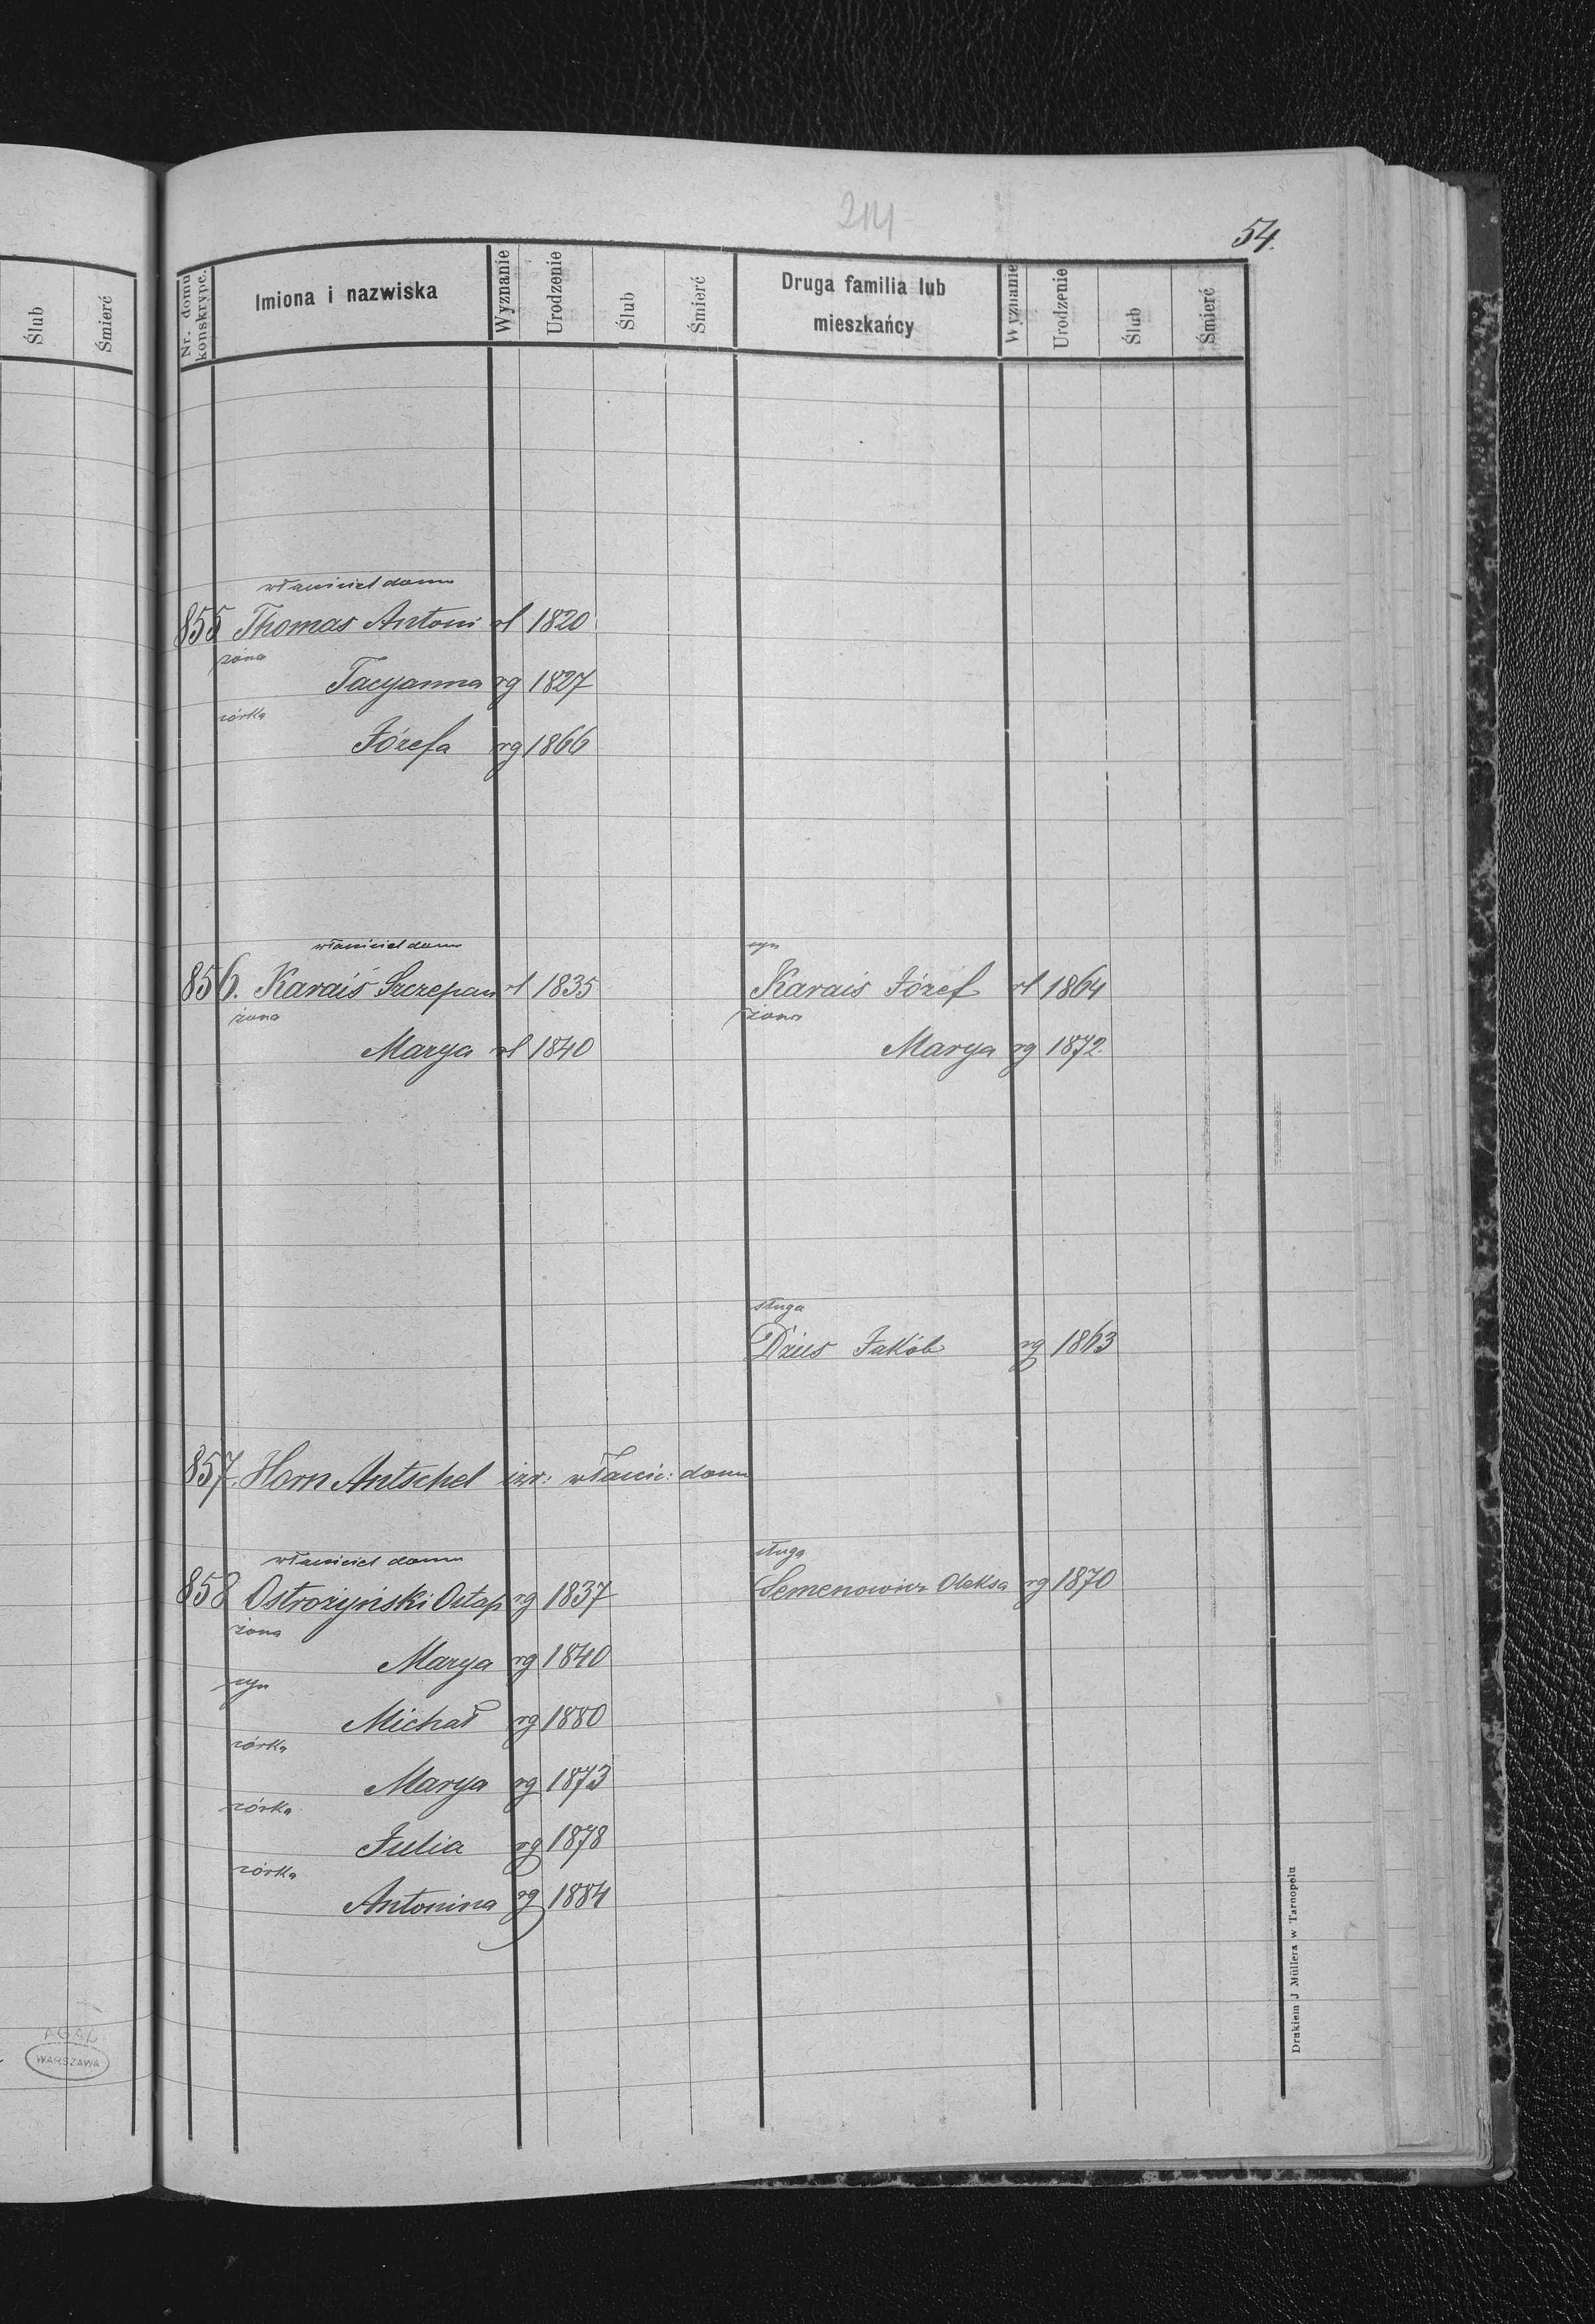 214
54.
Ślub Śmierć
Nr. domu konskrypc. Imiona i nazwiska Wyznanie Urodzenie Ślub Śmierć Druga familia lub mieszkańcy Wyznanie Urodzenie Ślub Śmierć
właściciel domu
855 Thomas Antoni rl 1820
żona
Tacyanna rg 1827
córka
Józefa rg 1866
właściciel domu
856. Karaiś Szczepan rl 1835
żona
Marya rl 1840
syn
Karais Józef rl 1864
żona
Marya rg 1872.
sługa
Dzus Jakób rg 1863
857. Horn Antschel izr: właścic: domu
właściciel domu
858 Ostrożyński Ostap rg 1837
żona
Marya rg 1840
syn
Michał rg 1880
córka
Marya rg 1873
córka
Julia rg 1878
córka
Antonina rg 1884
sługa
Semenowicz Oleksa rg 1870
Drukiem J Müllera w Tarnopolu
AGAD
WARSZAWA